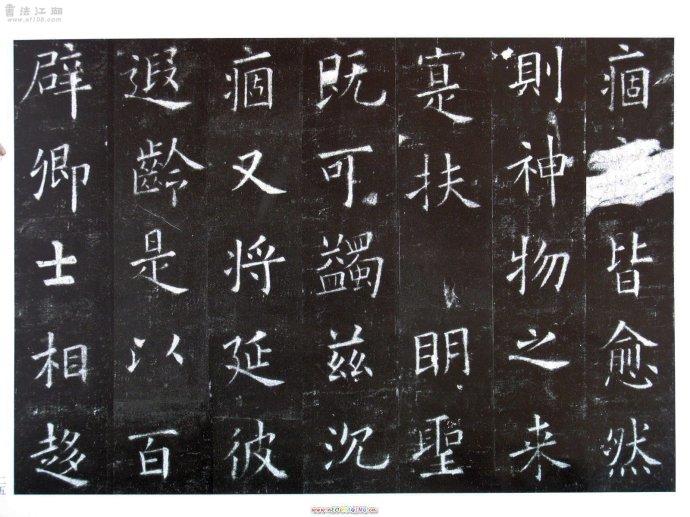 痼 皆愈然
則神物之来
寔扶 明聖
既可蠲兹沉
痼又将延彼
遐齡是以百
辟卿士相趍
書法江湖
二五